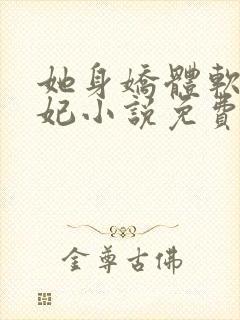 她身嬌體軟
妃小說免費
金尊古佛